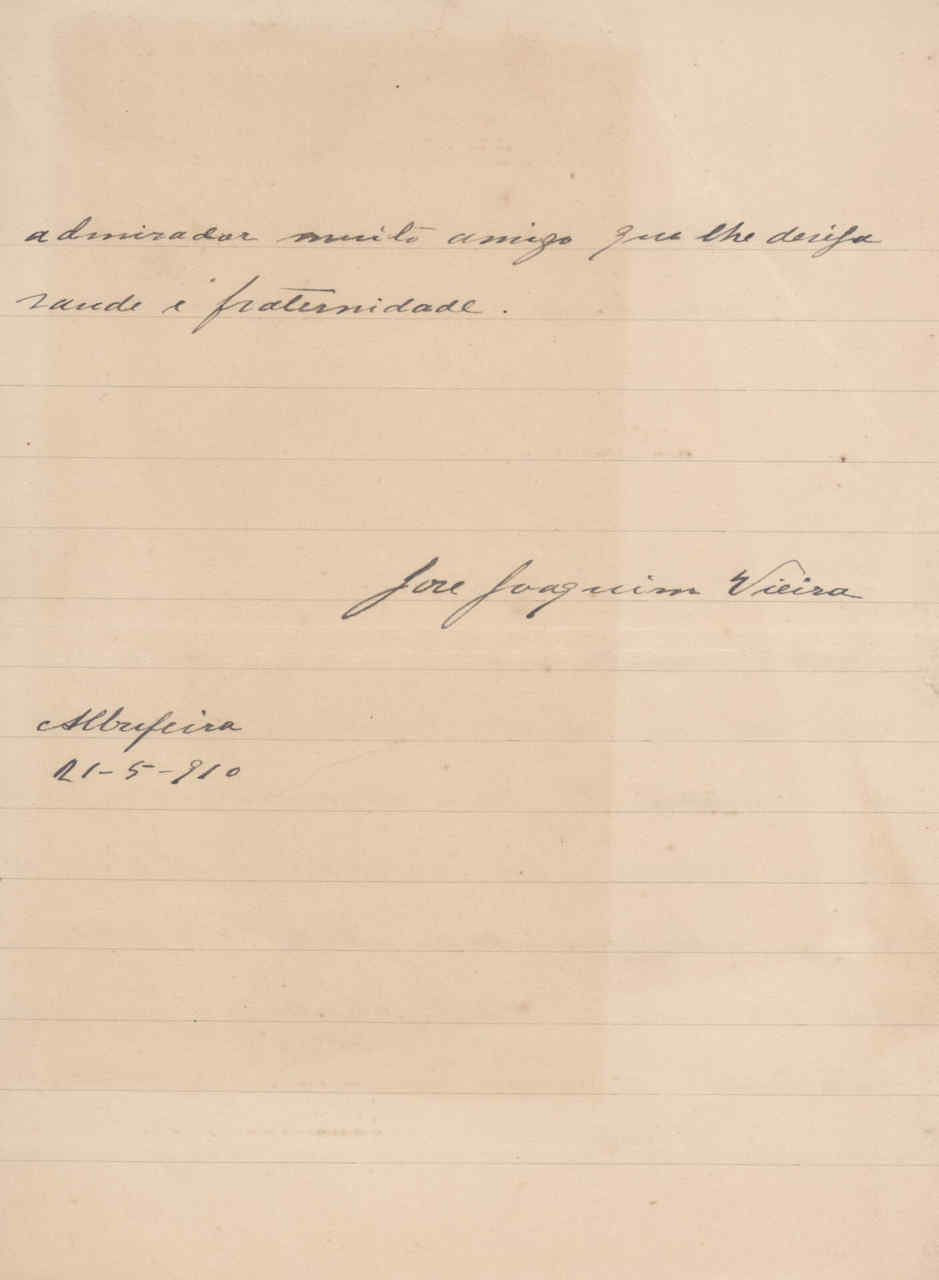 admirador muito amigo que lhe deseja
saude e fraternidade.
José Joaquim Vieira
Albufeira
21-5-910